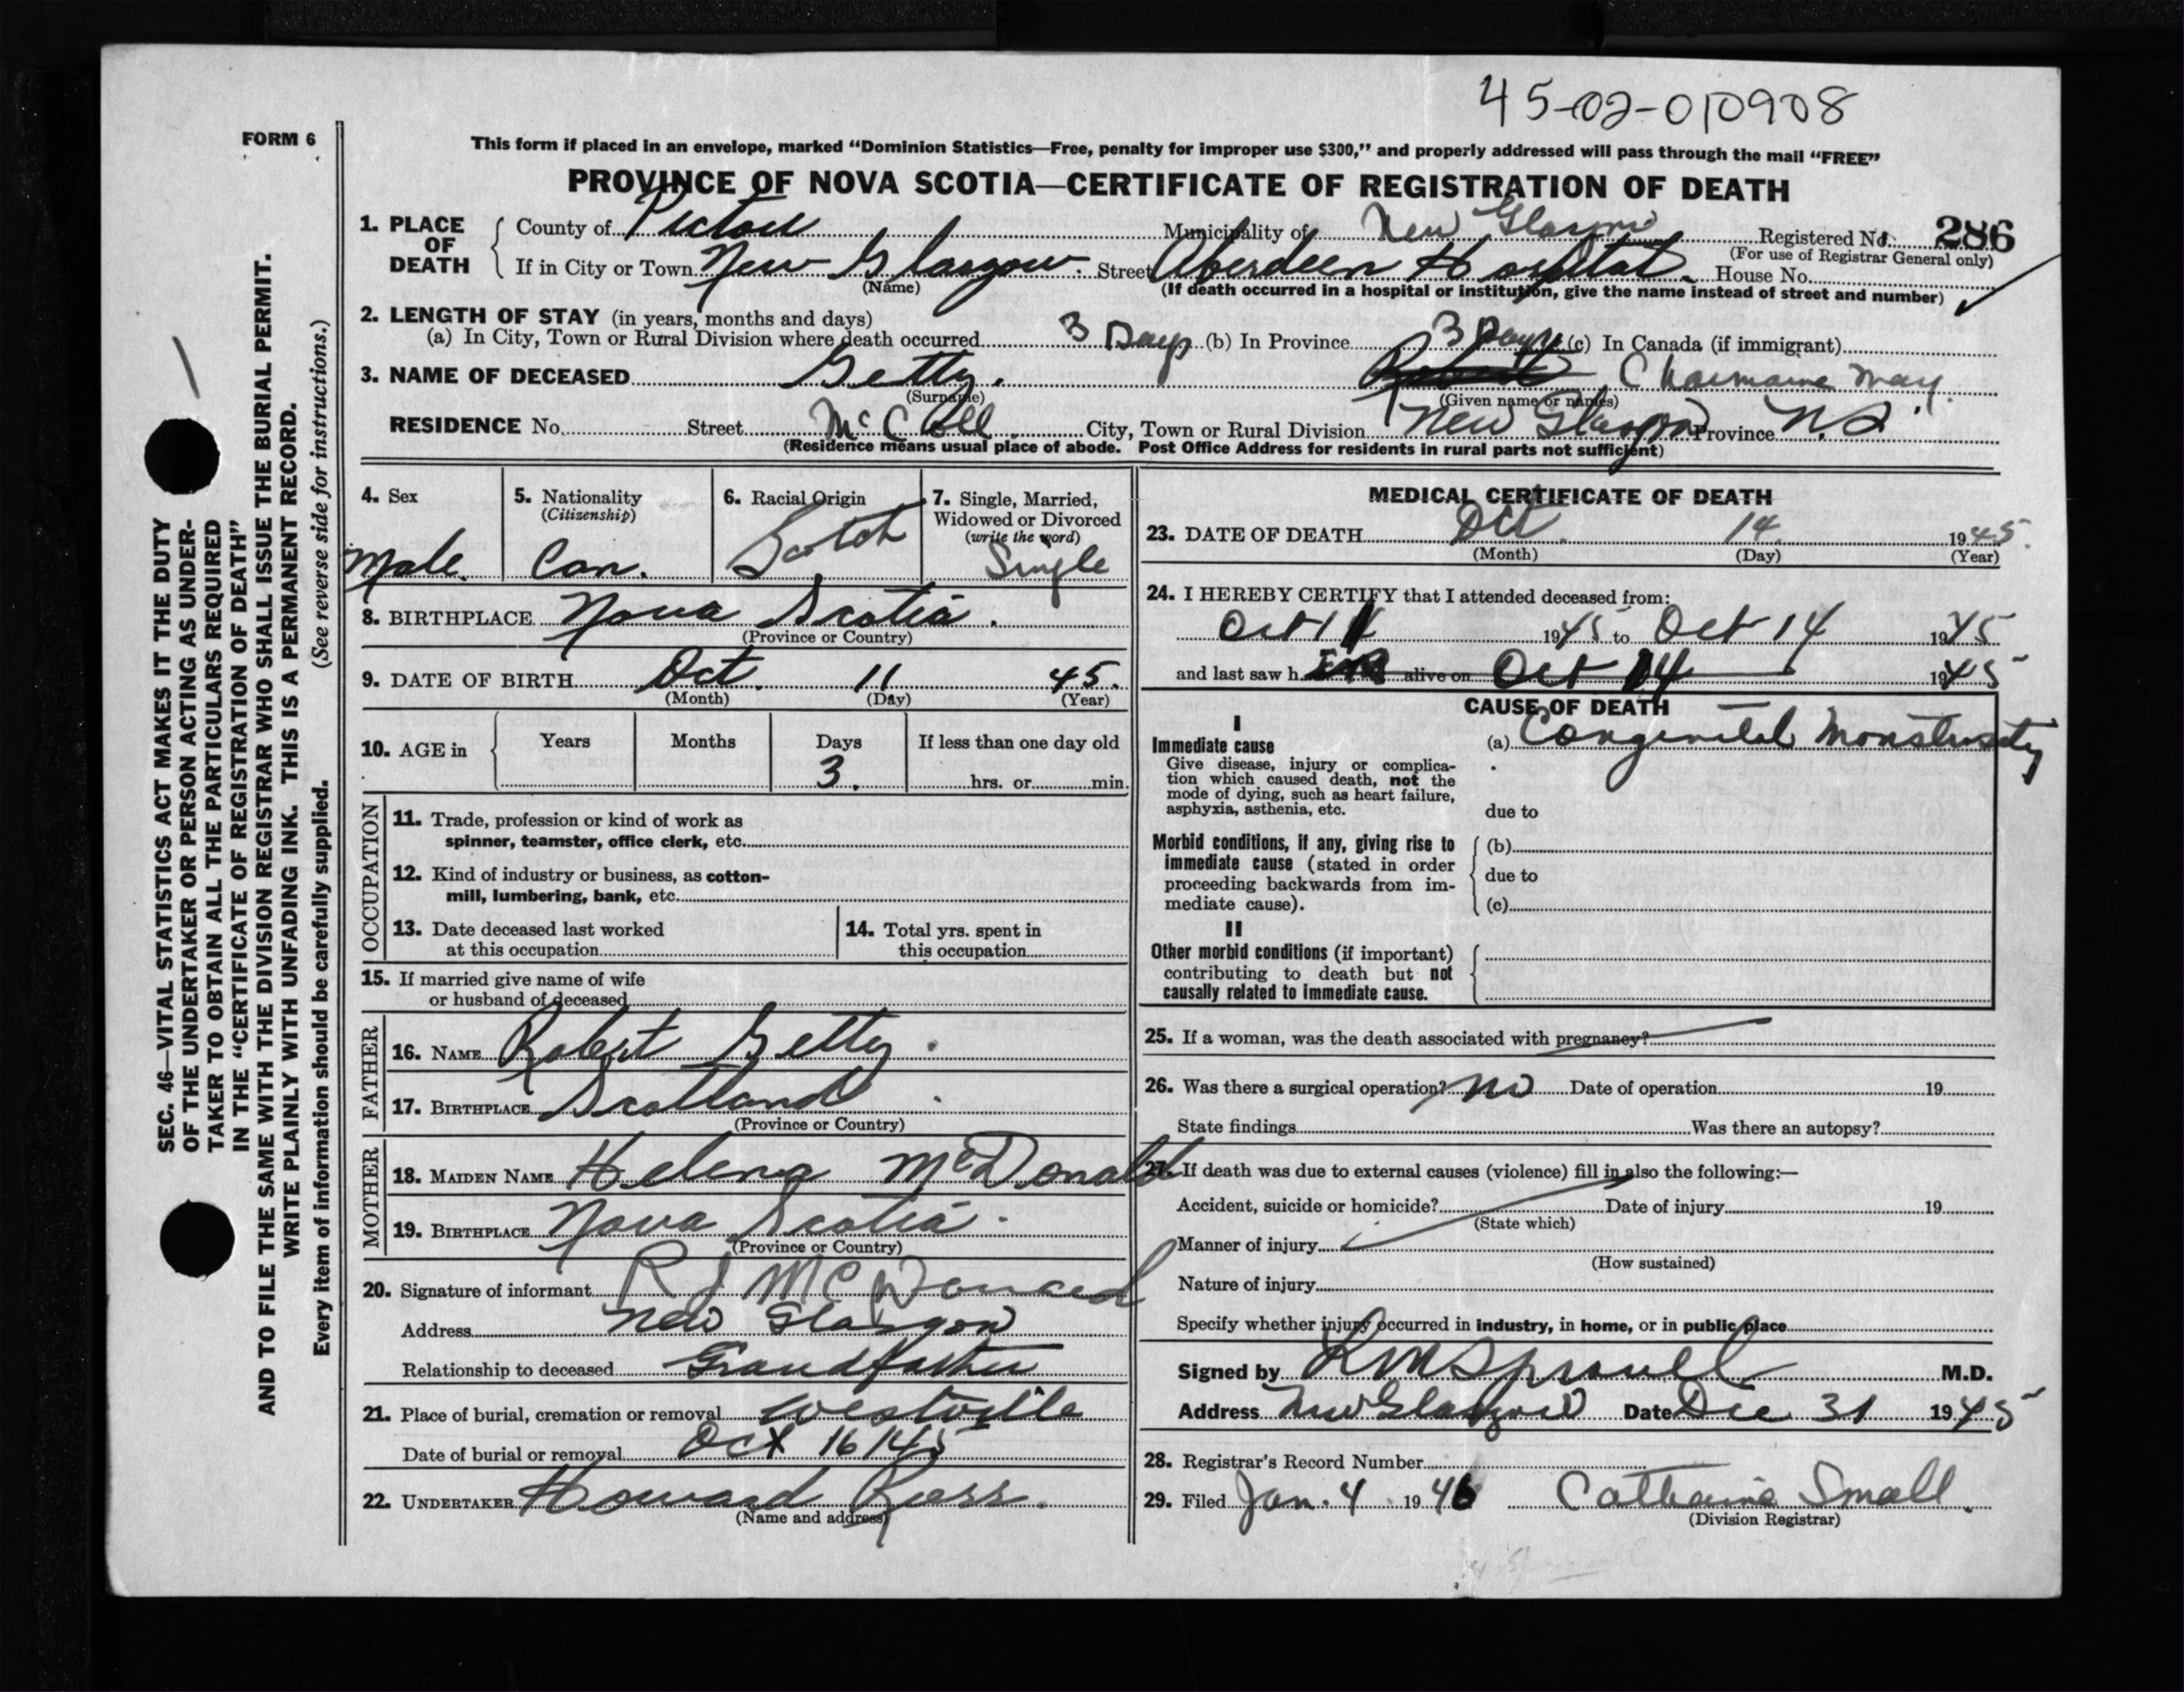 45-02-010908
FORM 6
This form if placed in an envelope, marked "Dominion Statistics—Free, penalty for improper use $300," and properly addressed will pass through the mail "FREE"
PROVINCE OF NOVA SCOTIA—CERTIFICATE OF REGISTRATION OF DEATH
1. PLACE OF DEATH County of Pictou Municipality of New Glasgow Registered No. 286
(For use of Registrar General only)
If in City or Town New Glasgow. Street Aberdeen Hospital. House No.
(Name) (If death occurred in a hospital or institution, give the name instead of street and number)
2. LENGTH OF STAY (in years, months and days)
(a) In City, Town or Rural Division where death occurred 3 Days (b) In Province 3 Days (c) In Canada (if immigrant)
3. NAME OF DECEASED Getty. Robert Charmaine May.
(Surname) (Given name or names)
RESIDENCE No. Street McColl City, Town or Rural Division New Glasgow Province N.S.
(Residence means usual place of abode. Post Office Address for residents in rural parts not sufficient)
4. Sex 5. Nationality (Citizenship) 6. Racial Origin 7. Single, Married, Widowed or Divorced (write the word)
Male. Can. Scotch Single
8. BIRTHPLACE Nova Scotia.
(Province or Country)
9. DATE OF BIRTH Oct. 11 45.
(Month) (Day) (Year)
10. AGE in Years Months Days If less than one day old
3. hrs. or min.
OCCUPATION
11. Trade, profession or kind of work as
spinner, teamster, office clerk, etc.
12. Kind of industry or business, as cotton-
mill, lumbering, bank, etc.
13. Date deceased last worked
at this occupation
14. Total yrs. spent in
this occupation
15. If married give name of wife
or husband of deceased
FATHER
16. NAME Robert Getty.
17. BIRTHPLACE Scotland
(Province or Country)
MOTHER
18. MAIDEN NAME Helena McDonald
19. BIRTHPLACE Nova Scotia.
(Province or Country)
20. Signature of informant R J McDonald
Address New Glasgow
Relationship to deceased Grandfather
21. Place of burial, cremation or removal Westville
Date of burial or removal Oct 16/45
22. UNDERTAKER Howard Ross.
(Name and address)
MEDICAL CERTIFICATE OF DEATH
23. DATE OF DEATH Oct. 14. 1945.
(Month) (Day) (Year)
24. I HEREBY CERTIFY that I attended deceased from:
Oct 11 1945 to Oct 14 1945
and last saw h alive on Oct 14 1945
CAUSE OF DEATH
I
Immediate cause (a) Congenital Monstrosity
Give disease, injury or complica-
tion which caused death, not the
mode of dying, such as heart failure,
asphyxia, asthenia, etc. due to
Morbid conditions, if any, giving rise to (b)
immediate cause (stated in order
proceeding backwards from im- due to
mediate cause). (c)
II
Other morbid conditions (if important)
contributing to death but not
causally related to immediate cause.
25. If a woman, was the death associated with pregnancy?
26. Was there a surgical operation? no Date of operation 19
State findings Was there an autopsy?
27. If death was due to external causes (violence) fill in also the following:—
Accident, suicide or homicide? Date of injury 19
(State which)
Manner of injury
(How sustained)
Nature of injury
Specify whether injury occurred in industry, in home, or in public place
Signed by R M Sproull M.D.
Address New Glasgow Date Dec 31 1945
28. Registrar's Record Number
29. Filed Jan. 4 1946 Catharine Small.
(Division Registrar)
SEC. 46—VITAL STATISTICS ACT MAKES IT THE DUTY
OF THE UNDERTAKER OR PERSON ACTING AS UNDER-
TAKER TO OBTAIN ALL THE PARTICULARS REQUIRED
IN THE "CERTIFICATE OF REGISTRATION OF DEATH"
AND TO FILE THE SAME WITH THE DIVISION REGISTRAR WHO SHALL ISSUE THE BURIAL PERMIT.
WRITE PLAINLY WITH UNFADING INK. THIS IS A PERMANENT RECORD.
Every item of information should be carefully supplied. (See reverse side for instructions.)